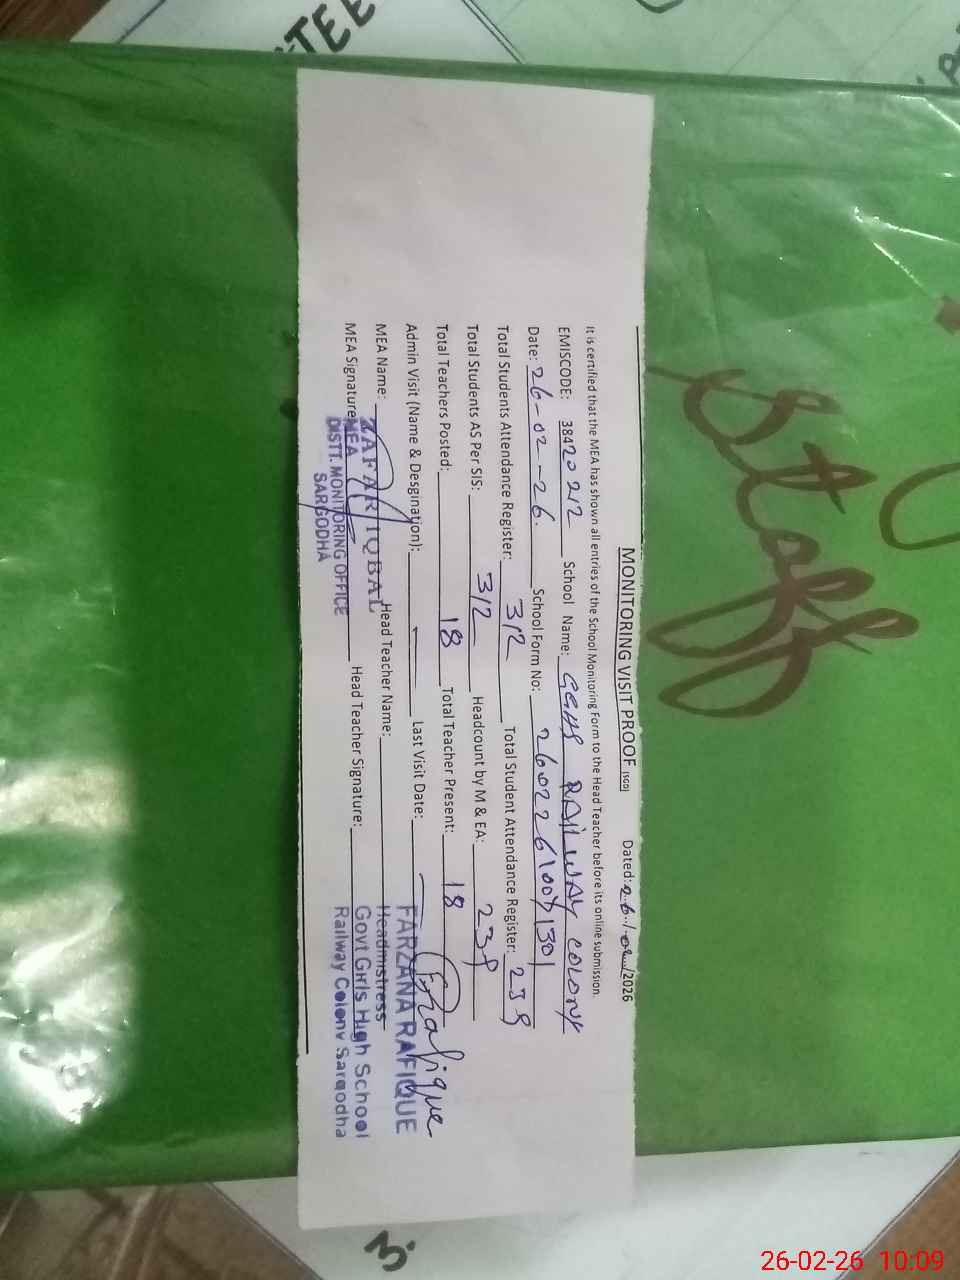 MONITORING VISIT PROOF (SGD) Dated: 26/02/2026
It is certified that the MEA has shown all entries of the School Monitoring Form to the Head Teacher before its online submission.
EMISCODE: 38420212 School Name: GGHS RAILWAY COLONY
Date: 26-02-26. School Form No:
Total Students Attendance Register: 312 Total Student Attendance Register: 239
Total Students AS Per SIS: 312 Headcount by M & EA: 239
Total Teachers Posted: 18 Total Teacher Present: 18
Admin Visit (Name & Desgination): Last Visit Date:
MEA Name: ZAFAR IQBAL Head Teacher Name: FARZANA RAFIQUE
MEA Signature: Head Teacher Signature: Rafique
MEA
DISTT. MONITORING OFFICE
SARGODHA
Headmistress
Govt Girls High School
Railway Colony Sargodha
Staff
TEE
3.
26-02-26 10:09